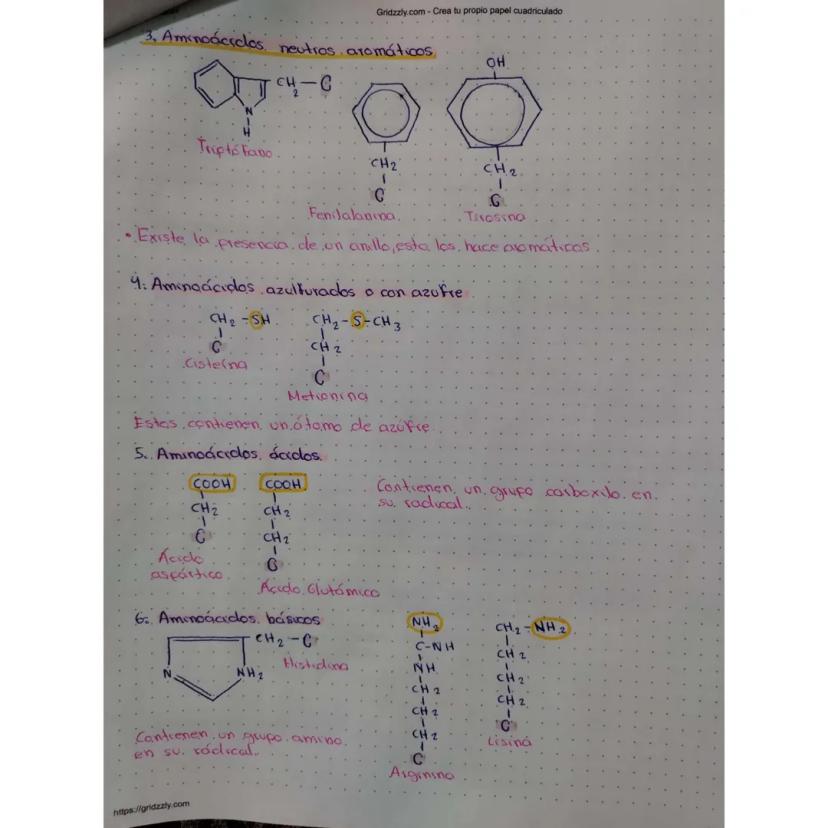 Gridzzly.com - Crea tu propio papel cuadriculado
3. Aminoácidos neutros aromáticos
CH2-C
N
H
Triptófano
CH2
C
Fenilalanina
OH
CH2
C
Tirosina
• Existe la presencia de un anillo, esto los hace aromáticos
4. Aminoácidos azulfurados o con azufre
CH2-SH
C
Cisteína
CH2-S-CH3
CH2
C
Metionina
Estos contienen un átomo de azúfre
5. Aminoácidos ácidos
COOH
CH2
C
Ácido
aspártico
COOH
CH2
CH2
C
Ácido Glutámico
Contienen un grupo carboxilo en
su radical.
6. Aminoácidos básicos
CH2-C
N
NH2
Histidina
Contienen un grupo amino
en su radical.
NH2
C-NH
NH
CH2
CH2
CH2
C
Arginina
CH2-NH2
CH2
CH2
CH2
C
Lisina
https://gridzzly.com